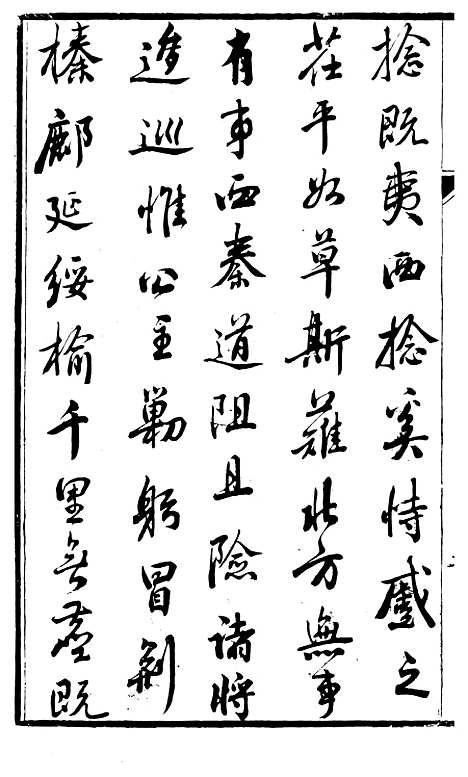 捻既夷西捻奚恃蹙之
茌平如草斯薙北方無事
有事西秦道阻且險諸將
逡巡惟公主勦躬冒荊
榛鄜延綏榆千里無塵既